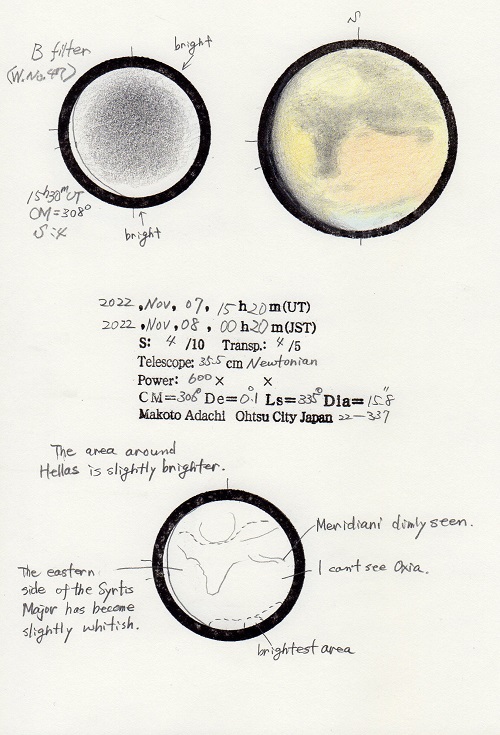 S
B filter
(W.No.47)
bright
15h30mUT
CM=308°
S:4
bright
2022, Nov, 07, 15h20m(UT)
2022, Nov, 08, 00h20m(JST)
S: 4 /10 Transp.: 4 /5
Telescope: 35.5 cm Newtonian
Power: 600× ×
CM=306° De=0.1° Ls=335° Dia=15.8"
Makoto Adachi Ohtsu City Japan 22-337
The area around
Hellas is slightly brighter.
Meridiani dimly seen.
I can't see Oxia.
The eastern
side of the Syrtis
Major has become
slightly whitish.
brightest area